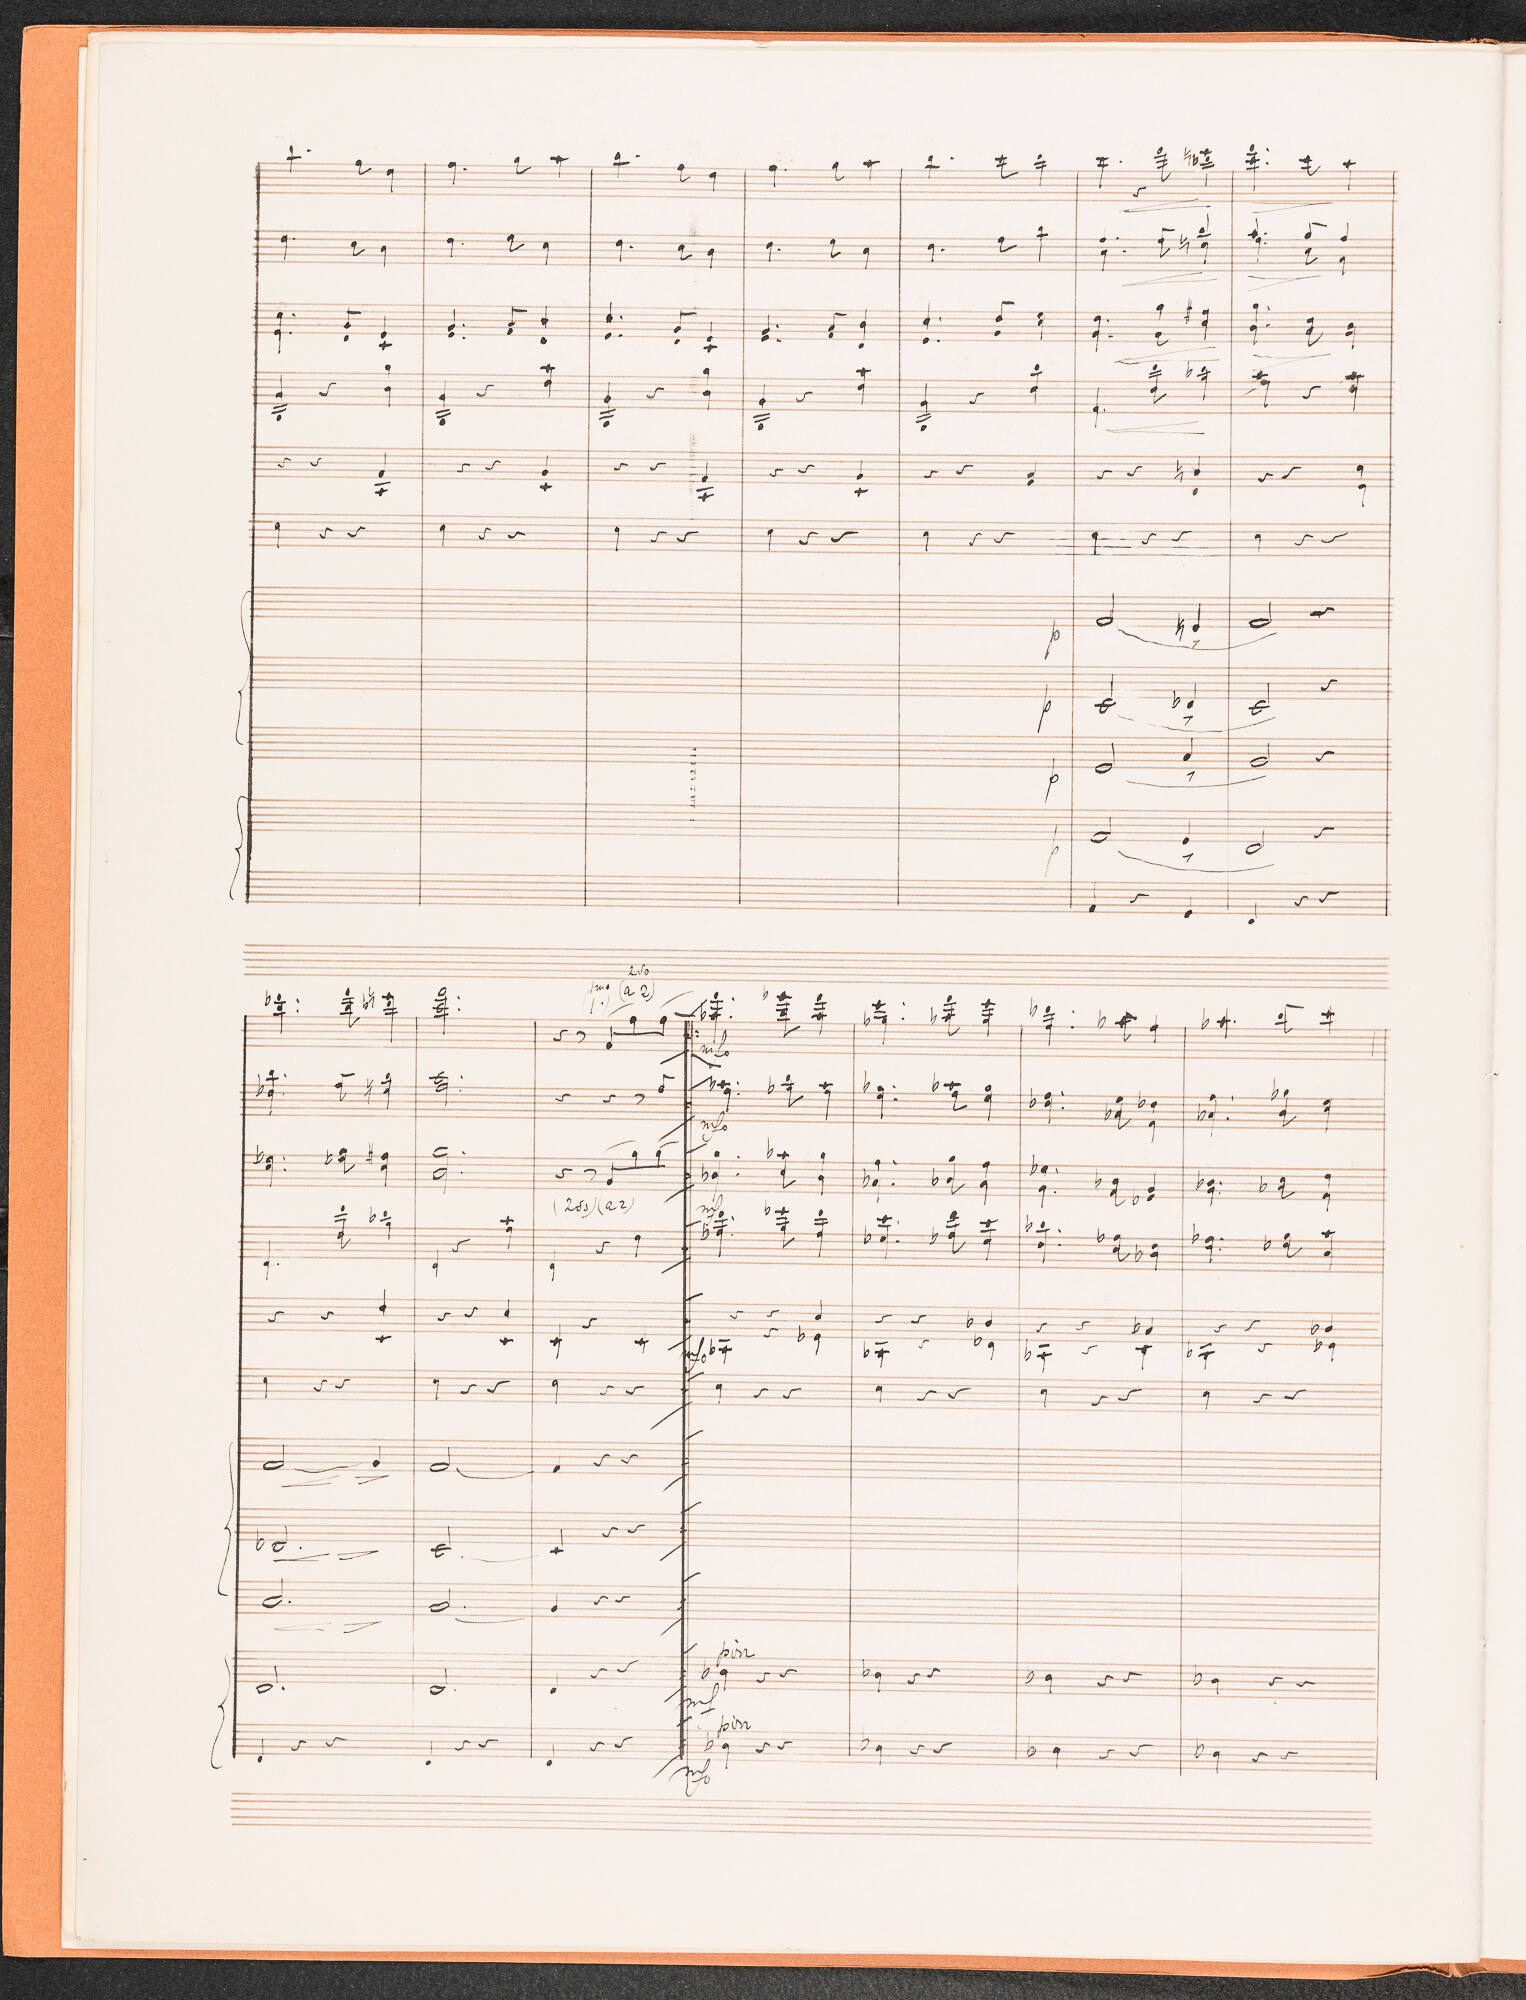 p
p
p
p
2do
1mo (a 2)
(1.)
mfo
mfo
(2do) (a 2)
mfo
mfo
pizz
mf
pizz
mfo